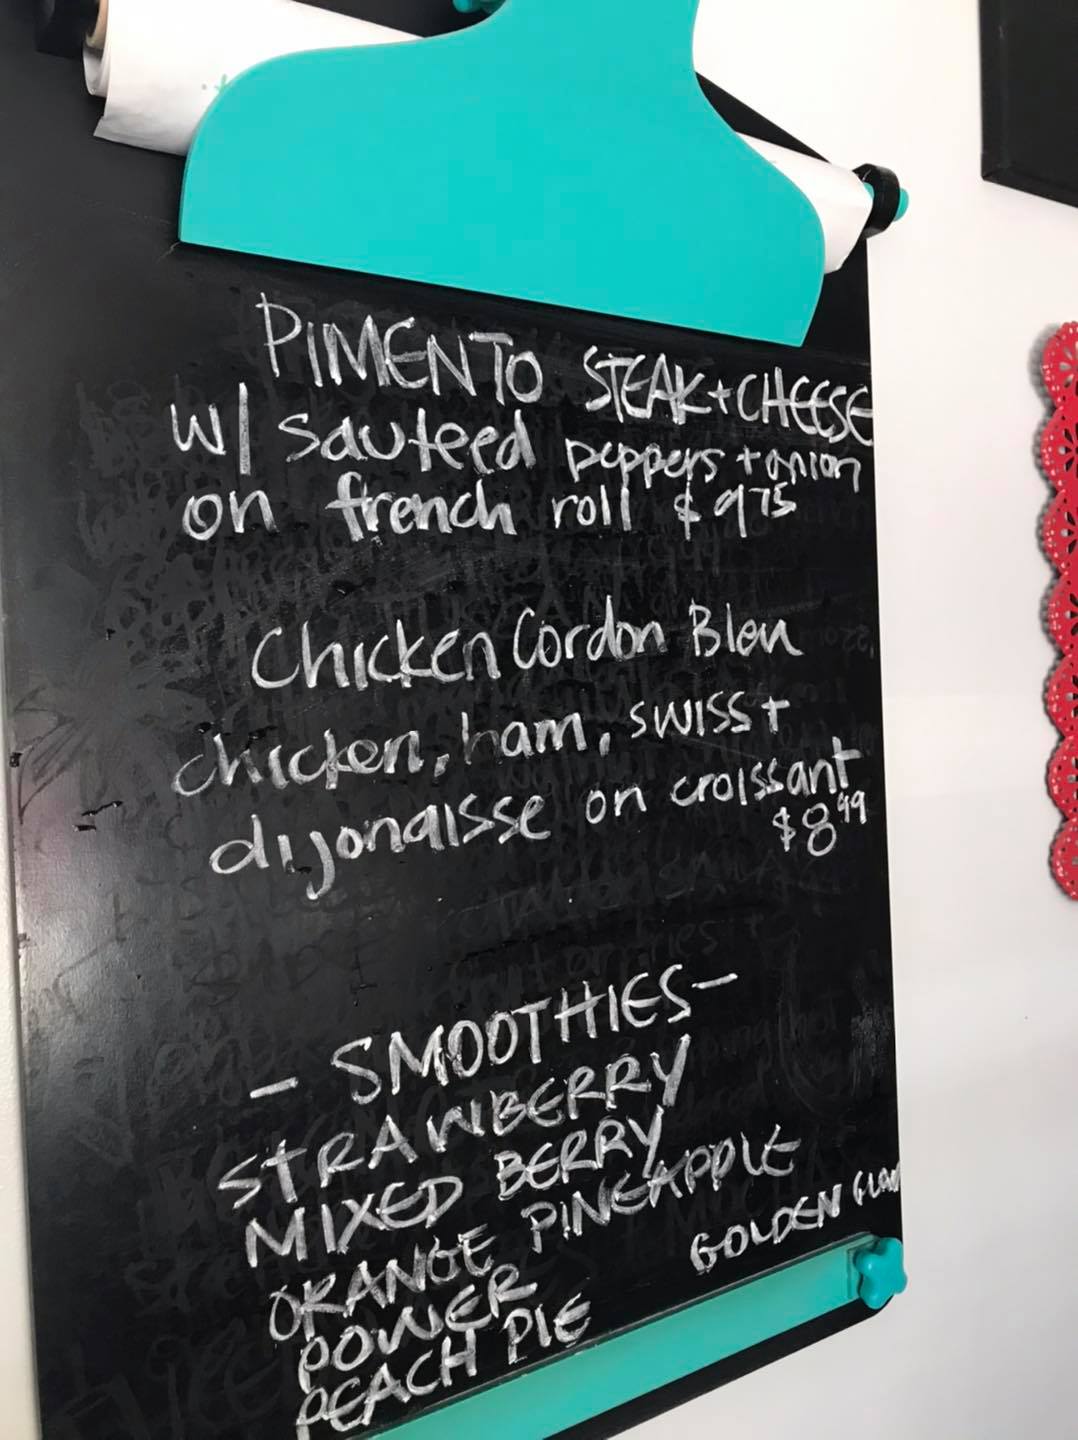 PIMENTO STEAK + CHEESE
w/ sauteed peppers + onion
on french roll $975
Chicken Cordon Bleu
chicken, ham, swiss +
dijonaisse on croissant
$8.99
- SMOOTHIES -
STRAWBERRY
MIXED BERRY
ORANGE PINEAPPLE
POWER
PEACH PIE
GOLDEN